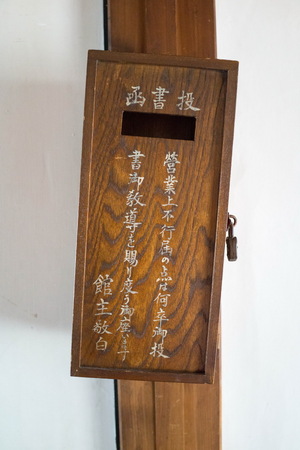 投書函
営業上不行届の点は何卒御投
書御教導を賜り度う御座います
館主敬白